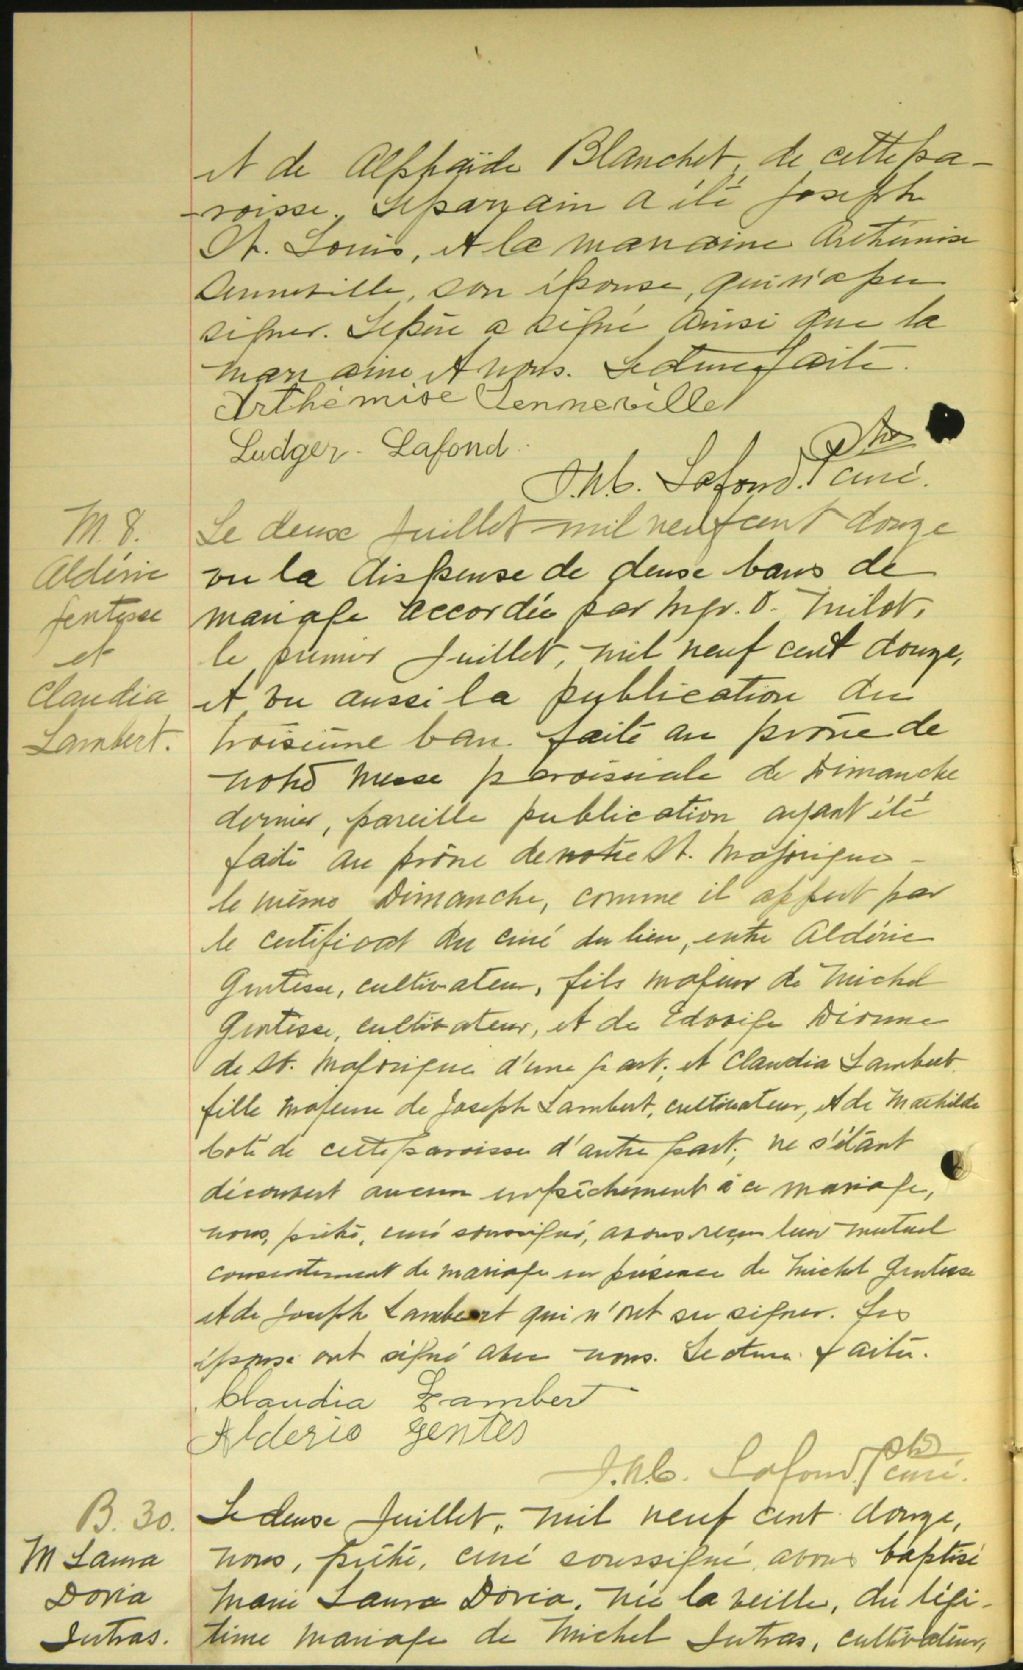 et de Alphaïde Blanchet, de cette pa-
-roisse. Le parrain a été Joseph
St. Louis, et la marraine Arthémise
Senneville, son épouse, qui n'a pu
signer. Le père a signé ainsi que la
marraine et nous. Lecture faite.
Arthémise Senneville
Ludger Lafond
J.N.C. Lafond. ptre curé.
M. 8.
Aldéric
Jentesse
et
Claudia
Lambert.
Le deux Juillet mil neuf cent douze
vu la dispense de deux bans de
mariage accordée par Mgr. O. Milot,
le premier Juillet, mil neuf cent douze,
et vu aussi la publication du
troisième ban faite au prône de
notre messe paroissiale de Dimanche
dernier, pareille publication ayant été
faite au prône de notre St. Majorique
le même Dimanche, comme il appert par
le certificat du curé du lieu, entre Aldéric
Gentesse, cultivateur, fils majeur de Michel
Gentesse, cultivateur, et de Edwige Dionne
de St. Majorique d'une part; et Claudia Lambert
fille majeure de Joseph Lambert, cultivateur, et de Mathilde
Coté de cette paroisse d'autre part; ne s'étant
découvert aucun empêchement à ce mariage,
nous, prêtre, curé soussigné, avons reçu leur mutuel
consentement de mariage en présence de Michel Gentesse
et de Joseph Lambert qui n'ont su signer. Les
époux ont signé avec nous. Lecture faite.
Claudia Lambert
Alderic Gentes
J.N.C. Lafond. ptre curé.
B. 30.
M Laura
Doria
Jutras.
Le deux Juillet, mil neuf cent douze,
nous, prêtre, curé soussigné, avons baptisé
Marie Laura Doria, née la veille, du légi-
time mariage de Michel Jutras, cultivateur,